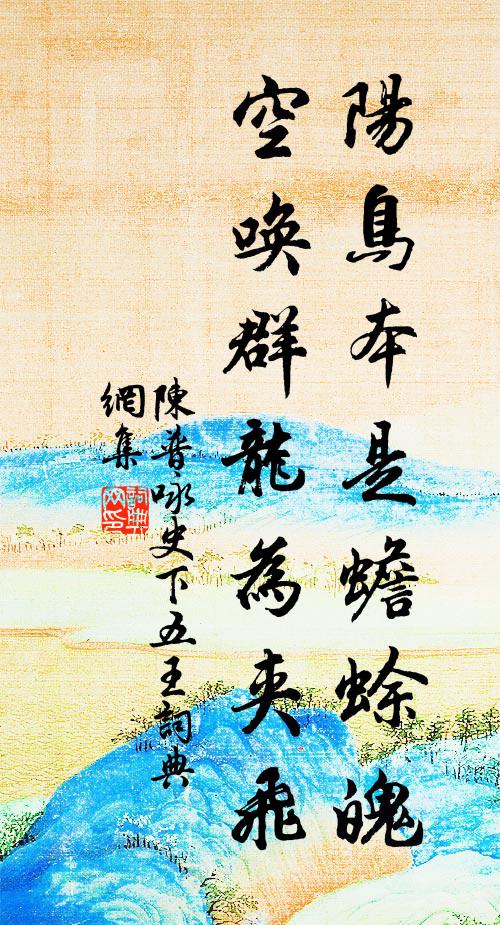 陽鳥本是蟾蜍魄
空喚群龍為夾飛
陳普咏史下五王詞典
網集
詞典網印